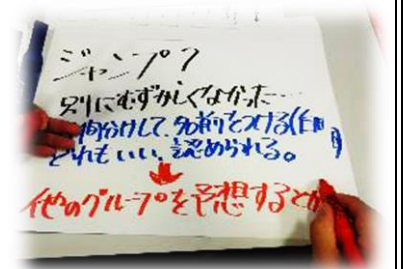 ジャンプ?
別にむずかしくなかった…
仲間分けして、名前をつける(自由
どれもいい、認められる。
他のグループを予想するとか